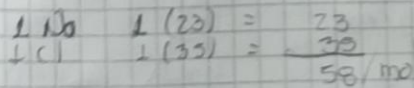 1 Na 1 (23) = 23
1 Cl 1 (35) = 35
58/mo